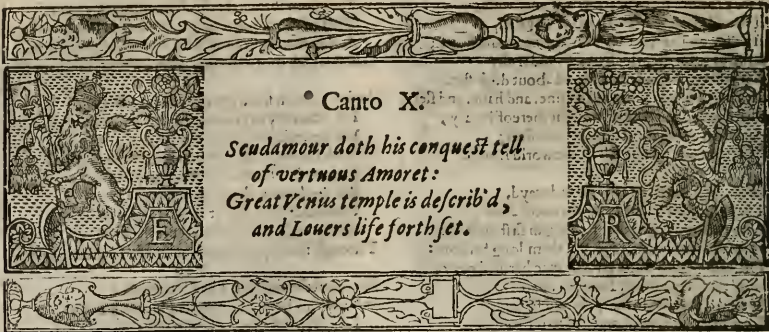 Canto X.
E
R
Scudamour doth his conqueſt tell
of vertuous Amoret:
Great Venius temple is deſcrib'd,
and Louers life forth ſet.